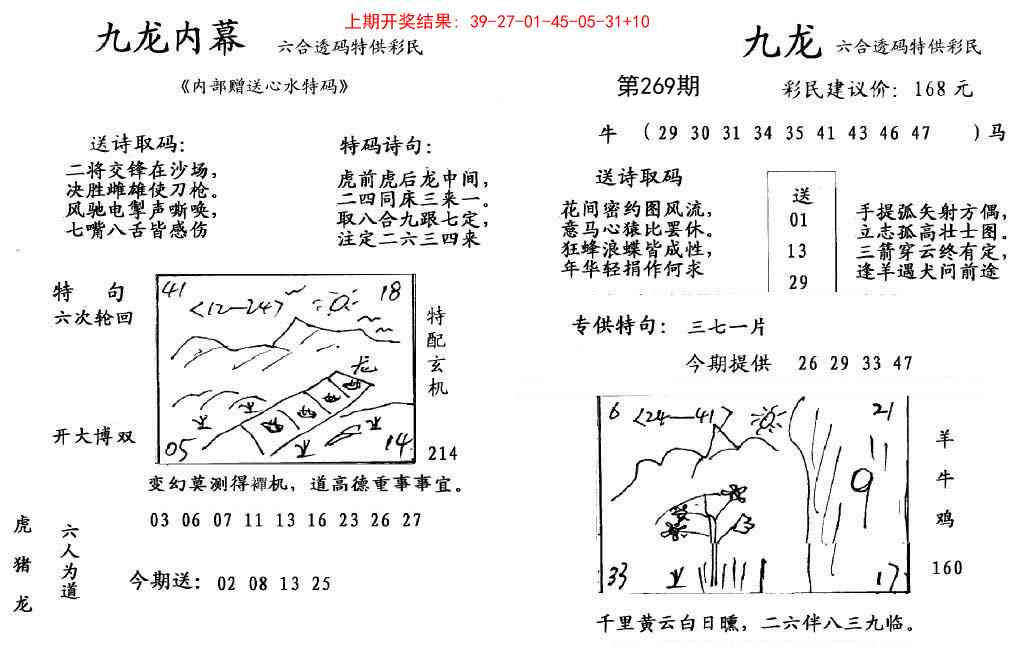 上期开奖结果: 39-27-01-45-05-31+10
九龙内幕 六合透码特供彩民
《内部赠送心水特码》
送诗取码:
二将交锋在沙场，
决胜雌雄使刀枪。
风驰电掣声嘶唤，
七嘴八舌皆感伤
特码诗句:
虎前虎后龙中间，
二四同床三来一。
取八合九跟七定，
注定二六三四来
特 句
六次轮回
开大博双
41
<12—24>
18
龙
05
14
特配玄机
214
变幻莫测得禅机，道高德重事事宜。
03 06 07 11 13 16 23 26 27
虎猪龙
六人为道
今期送: 02 08 13 25
九龙 六合透码特供彩民
第269期 彩民建议价: 168 元
牛 (29 30 31 34 35 41 43 46 47 )马
送诗取码
花间密约图风流，
意马心猿比罢休。
狂蜂浪蝶皆成性，
年华轻捐作何求
送
01
13
29
手提弧矢射方偶，
立志孤高壮士图。
三箭穿云终有定，
逢羊遇犬问前途
专供特句: 三七一片
今期提供 26 29 33 47
6
<24—41>
21
9
33
17
羊
牛
鸡
160
千里黄云白日曛，二六伴八三九临。